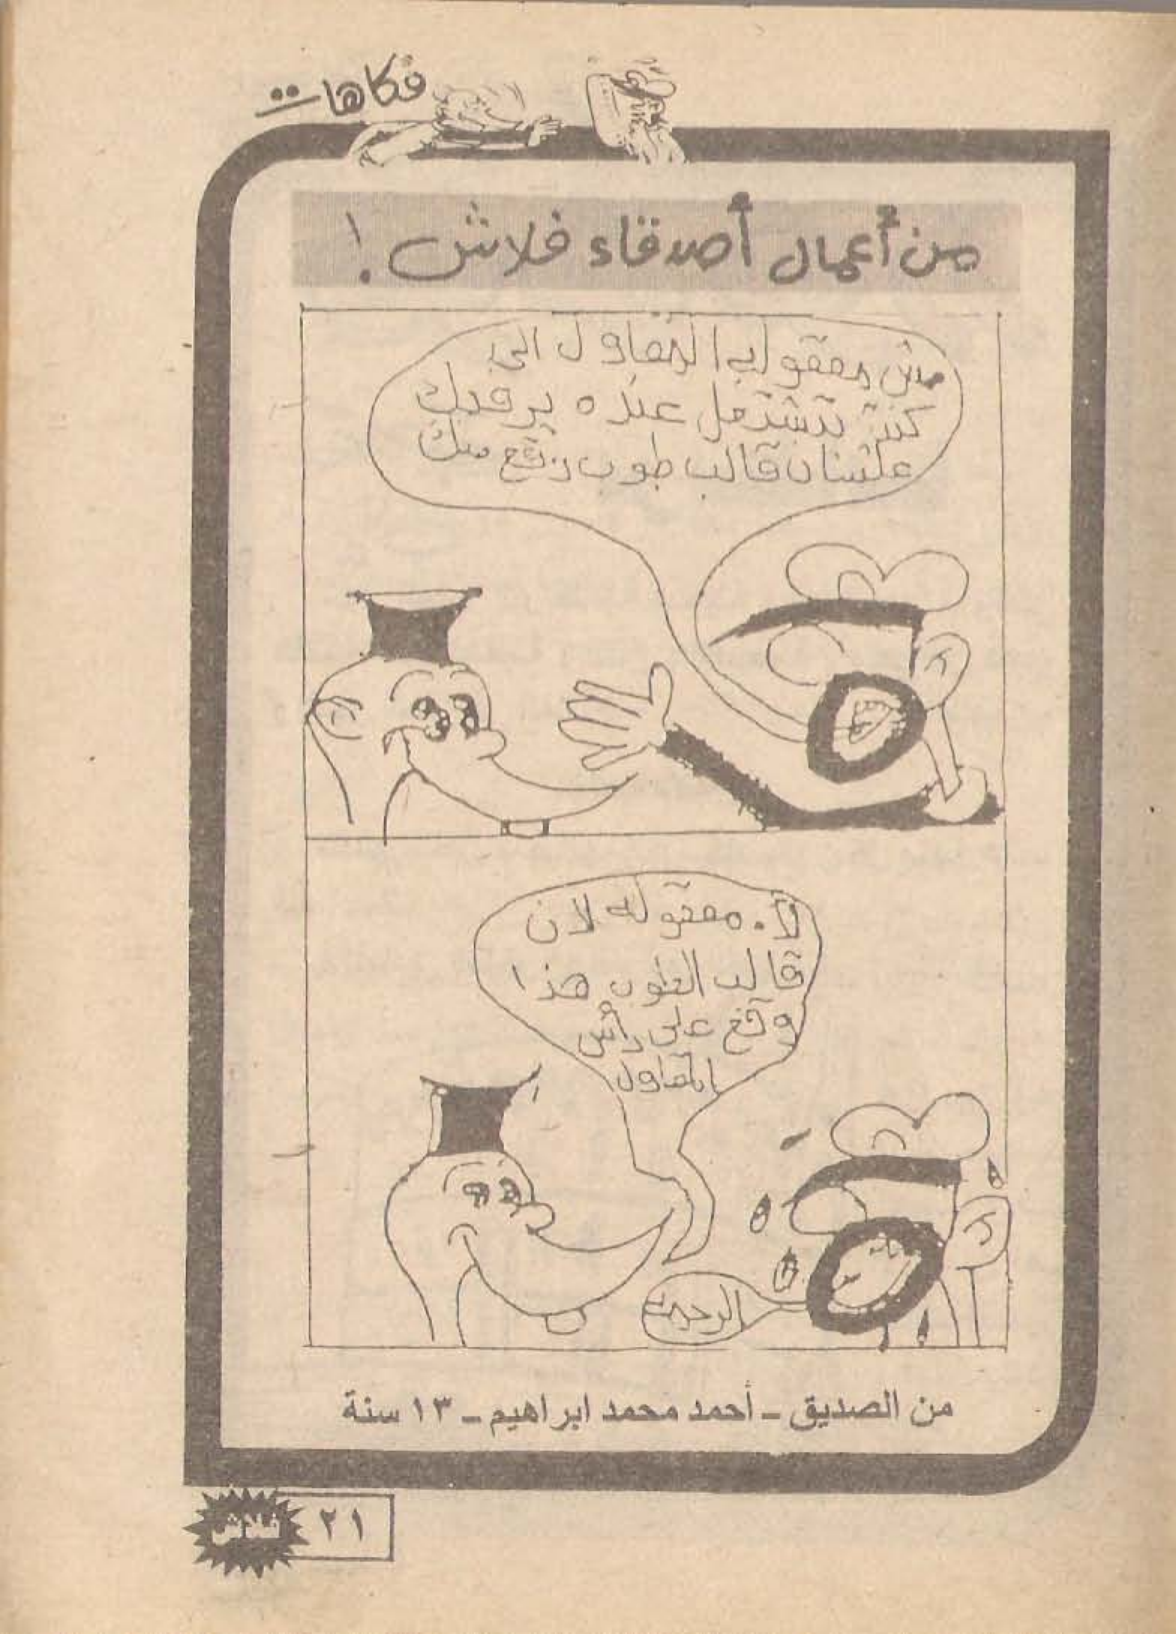 فكاهات
من أعمال أصدقاء فلاش !
مش معقوله المقاول الى
كنت بتشتغل عنده يرفدك
علشان قالب طوب وقع منك
لأ. معقوله لان
قالب الطوب هذا
وقع على رأس
المقاول
الرحمة
من الصديق - أحمد محمد ابراهيم - ١٣ سنة
٢١
فلاش